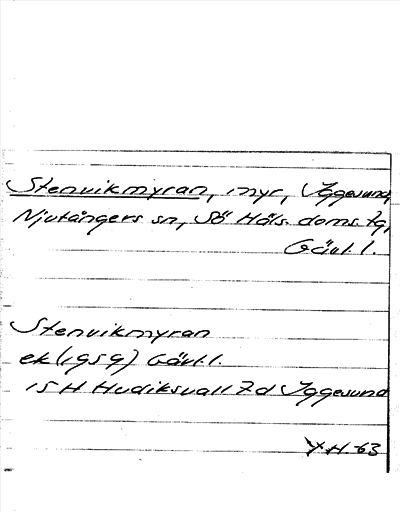 Stenvikmyran, myr, Iggesund,
Njutångers sn, Sö Häls. doms. tg,
Gävl. l.
Stenvikmyran
ek (1959) Gävl. l.
15 H Hudiksvall 7d Iggesund
Y.H. 63